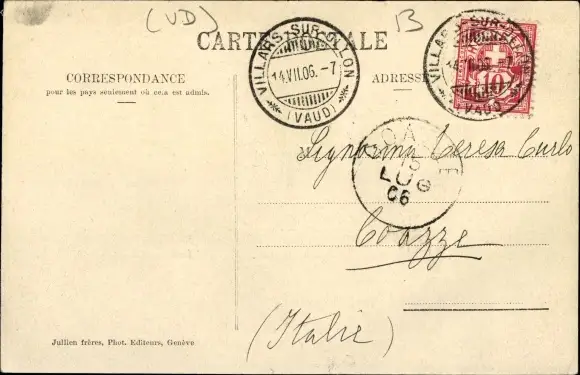 (VD)
B
CARTE POSTALE
CORRESPONDANCE
pour les pays seulement où cela est admis.
ADRESSE
VILLARS-SUR-OLLON
14.VII.06.-7
(VAUD)
VILLARS-SUR-OLLON
14.VII.06.-7
(VAUD)
10
COAZZE
15
LUG
06
Signorina Teresa Curlo
Coazze
(Italie)
Jullien frères, Phot. Editeurs, Genève